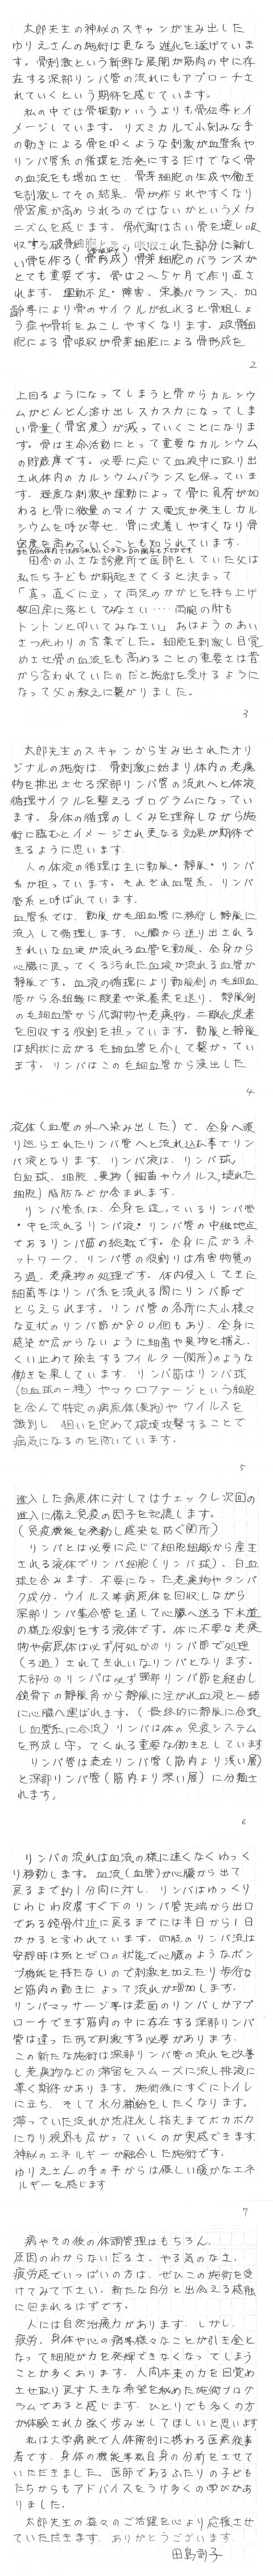 太郎先生の神秘のスキャンが生み出した
ゆりえさんの施術は更なる進化を遂げていま
す。骨刺激という新鮮な展開が筋肉の中に存
在する深部リンパ管の流れにもアプローチさ
れていくという期待を感じています。
私の中では骨振動というよりも骨伝導とイ
メージしています。リズミカルで小刻みな手
の動きによる骨を叩くような刺激が血管系や
リンパ管系の循環を活発にするだけでなく骨
の血流をも増加させ、骨芽細胞の生成や働き
を刺激してその結果、骨が作られやすくなり
骨密度が高められるのではないかというメカ
ニズムを感じます。骨代謝は古い骨を壊し吸
収する破骨細胞と その吸収された部分に新し
い骨を作る(骨形成)骨芽細胞のバランスが
とても重要です。骨は2~5ヶ月で作り直さ
れます。運動不足・障害、栄養バランス、加
齢等により骨のサイクルが乱れると骨粗しょ
う症や骨折をおこしやすくなります。破骨細
胞による骨吸収が骨芽細胞による骨形成を
2
上回るようになってしまうと骨からカルシウ
ムがどんどん溶け出しスカスカになってしま
い骨量(骨密度)が減っていくことになりま
す。骨は生命活動にとって重要なカルシウム
の貯蔵庫です。必要に応じて血液中に取り出
され体内のカルシウムバランスを保っていま
す。適度な刺激や運動によって骨に負荷が加
わると骨に微量のマイナス電流が発生しカル
シウムを呼び寄せ、骨に沈着しやすくなり骨
密度を高めていくことも知られています。
田舎の小さな診療所で医師をしていた父は
私たち子どもが朝起きてくると決まって
「真っ直ぐに立って両足のかかとを持ち上げ
数回床に落としてみなさい‥‥両腕の肘も
トントンと叩いてみなさい」おはようのあい
さつ代わりの言葉でした。細胞を刺激し目覚
めさせ骨の血流をも高めることの重要さは昔
から言われていたのだと施術を受けるように
なって父の教えに繋がりました。
3
太郎先生のスキャンから生み出されたオリ
ジナルの施術は、骨刺激に始まり体内の老廃
物を排出させる深部リンパ管の流れへと体液
循環サイクルを整えるプログラムになってい
ます。身体の循環のしくみを理解しながら施
術に臨むとイメージされ更なる効果が期待で
きるように思います。
人の体液の循環は主に動脈・静脈・リンパ
系が担っています。それぞれ血管系、リンパ
管系と呼ばれています。
血管系では、動脈から毛細血管に移行し静脈に
流入して循環します。心臓から送り出される
きれいな血液が流れる血管を動脈、全身から
心臓に戻ってくる汚れた血液が流れる血管が
静脈です。血液の循環により動脈側の毛細血
管から各組織に酸素や栄養素を送り、静脈側
の毛細血管から代謝物や老廃物、二酸化炭素
を回収する役割を担っています。動脈と静脈
は網状に広がる毛細血管を介して繋がってい
ます。リンパはこの毛細血管から浸出した
4
液体(血管の外へ染み出した)で、全身へ張
り巡らされたリンパ管へと流れ込む事でリン
パ液となります。リンパ液は、リンパ球、
白血球、細胞、異物(細菌やウイルス、壊れた
細胞)脂肪などが含まれます。
リンパ管系は、全身を巡っているリンパ管
・中を流れるリンパ液・リンパ管の中継地点
であるリンパ節の総称です。全身に広がるネ
ットワーク、リンパ管の役割りは有害物質の
ろ過、老廃物の処理です。体内侵入してきた
細菌等はリンパ系を流れる間にリンパ節で
とらえられます。リンパ管の各所に大小様々
な豆状のリンパ節が800個もあり、全身に
感染が広がらないように細菌や異物を捕え、
くい止めて除去するフィルター(関所)のような
働きを果しています。リンパ節はリンパ球
(白血球の一種)やマクロファージという細胞
を含んで特定の病原体(異物)やウイルスを
識別し、狙いを定めて破壊攻撃することで
病気になるのを防いでいます。
5
進入した病原体に対してはチェックし次回の
進入に備え免疫の因子を記憶します。
(免疫機能を発動し感染を防ぐ関所)
リンパとは必要に応じて細胞組織から産生
される液体でリンパ細胞(リンパ球)、白血
球を含みます。不要になった老廃物やタンパ
ク成分、ウイルス等病原体を回収しながら
深部リンパ集合管を通して心臓へ送る下水道
の様な役割をする液体です。体に不要な老廃
物や病原体は必ず何処かのリンパ節で処理
(ろ過)されてきれいなリンパとなります。
大部分のリンパは必ず頸部リンパ節を経由し
鎖骨下の静脈角から静脈に注がれ血液と一緒
に心臓へ運ばれます。(最終的に静脈に合流
し血管系に合流)リンパは体の免疫システム
を形成し守ってくれる重要な働きをしています
リンパ管は表在リンパ管(筋肉より浅い層)
と深部リンパ管(筋肉より深い層)に分類さ
れます。
6
リンパの流れは血流の様に速くなくゆっく
り移動します。血流(血管)が心臓から出て
戻るまで約1分間に対し、リンパはゆっくり
じわじわ皮膚すぐ下のリンパ管先端から出口
である鎖骨付近に戻るまでには半日から1日
かかると言われています。四肢のリンパ流は
安静時は殆どゼロの状態で心臓のようなポン
プ機能を持たないので刺激を加えたり歩行な
ど筋肉の動きによって流れが増加します。
リンパマッサージ等は表面のリンパしかアプ
ローチできず筋肉の中に存在する深部リンパ
管は違った形で刺激する必要があります。
この新たな施術は深部リンパ管の流れを改善
し老廃物などの滞留をスムーズに流し排液に
導く期待があります。施術後にすぐにトイレ
に立ち、そして水分補給をしたくなります。
滞っていた流れが活性化し指先までポカポカ
になり視界も広がっていくのが実感できます。
神秘のエネルギーが融合した施術です。
ゆりえさんの手の平からは優しい暖かなエネ
ルギーを感じます
7
病やその後の体調管理はもちろん、
原因のわからないだるさ、やる気のなさ、
疲労感でいっぱいの方は、ぜひこの施術を受
けてみて下さい。新たな自分と出会える感触
に包まれるはずです。
人には自然治癒力があります。しかし、
疲労、身体や心の病等様々なことが引き金と
なって細胞が力を発揮できなくなってしまう
ことが多くあります。人間本来の力を目覚め
させ取り戻す大きな希望を秘めた施術プログ
ラムであると感じます。ひとりでも多くの方
が体験され力強く歩み出してほしいと思います
私は大学病院で人体解剖に携わる医療従事
者です。身体の機能等私自身の分析をさせて
いただきました。医師であるふたりの子ども
たちからもアドバイスをうけ多くの学びがあ
りました。
太郎先生の益々のご活躍を心より応援させ
ていただきます。ありがとうございます。